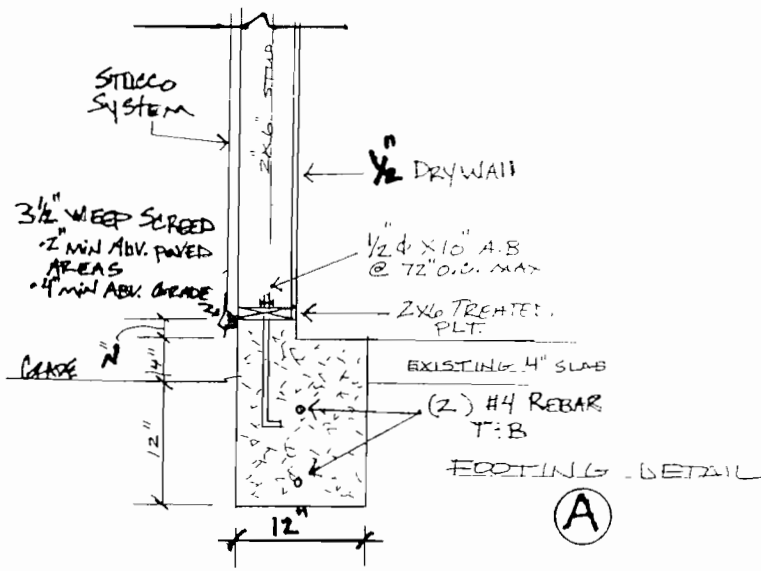 STUCCO
SYSTEM
2X6" STUD
1/2" DRYWALL
3 1/2" WEEP SCREED
·2" MIN ABV. PAVED
AREAS
·4" MIN ABV. GRADE
1/2"ϕ X 10" A.B
@ 72" O.C. MAX
2X6 TREATED
PLT.
GRADE
2"
4"
12"
EXISTING 4" SLAB
(2) #4 REBAR
T:B
FOOTING DETAIL
A
12"